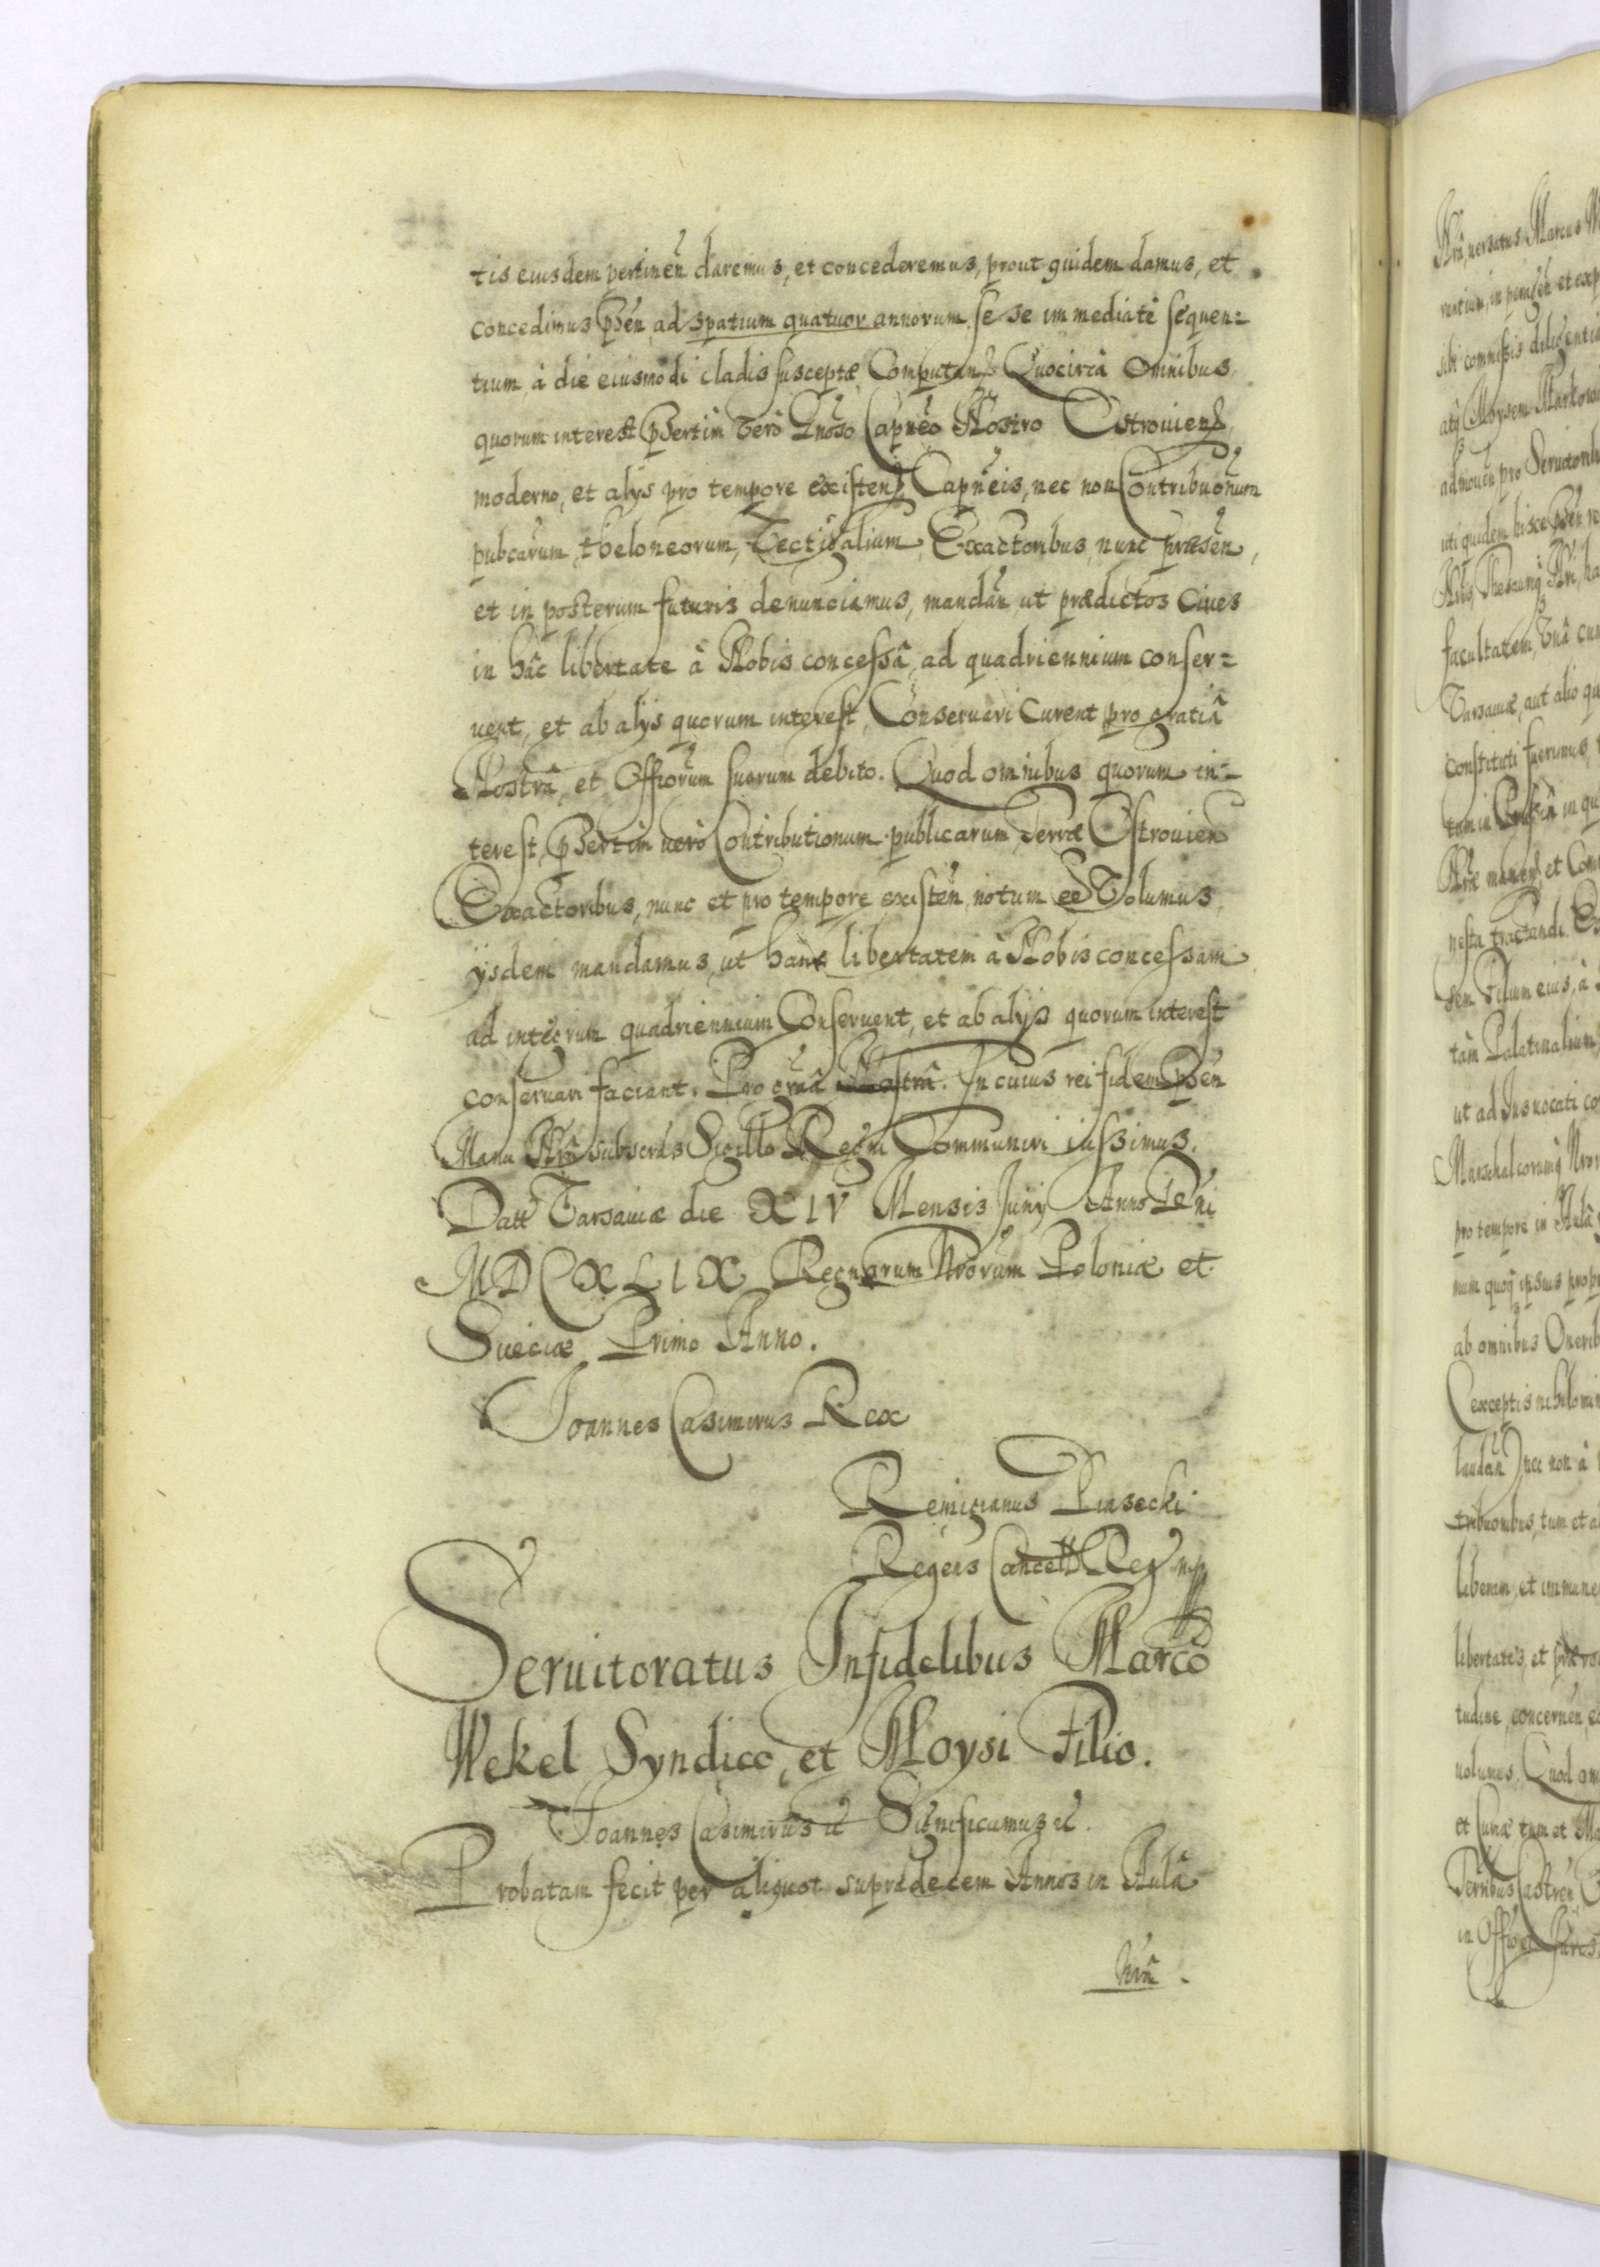 tis eiusdem pertinen̄ daremus, et concederemus, prout quidem damus, et
concedimus p̄sen̄ ad spatium quatuor annorum se se immediatè sequen=
tium à die eiusmodi cladis susceptæ Computan̄. Quocircà Omnibus
quorum interest p̄sertim Verò Capn̄eo Nostro Ostrouien̄
moderno, et alys pro tempore existen̄ Capn̄eis, nec non Contribuōnum
pubcarum, theloneorum, Vectigalium, Exactoribus, nunc præsen̄,
et in posterum futuris denunciamus, mandan̄ ut prædictos Ciues
in hâc libertate â Nobis concessâ, ad quadriennium conser=
uent, et ab alys quorum interest, Conseruari Curent pro gratiâ
Nostrâ, et Offiorum suorum debito. Quod omnibus quorum in=
terest, p̄sertim uerò Contributionum publicarum Terræ Ostrouien̄
Exactoribus, nunc et pro tempore existen̄ notum ee Volumus
ysdem mandamus, ut hanc libertatem à Nobis concessam
ad integrum quadriennium Conseruent, et ab alys quorum interest
conseruari faciant. Pro grâa Nostrâ. In cuius rei fidem p̄sen̄
Manu Nrâ subscrās Sigillo Regni Communiri iussimus.
Datt Varsauiæ die XIV Mensis Juny Anno Dn̄i
MDCXLIX Regnorum Nrorum Poloniæ et
Sueciæ Primo Anno.
Joannes Casimirus Rex
Remigianus Piasecki
Regens Cancell Reg mp
Seruitoratus Infidelibus Marco
Wekel Syndico, et Moysi Filio.
Joannes Casimirus Significamus
Probatam fecit per aliquot supra decem Annos in Aulâ
Nrâ.
Nrâ, uersatus Marcus
sibi commissis diligentia
atq Moysem Markow
uti quidem hisce p̄sen̄
facultatem, Vnâ cum
Varsauiæ, aut alio qu
constituti fuerimus,
et Com
ut ad Jus uocati
pro tempore in Aulâ
num quoq ipsius
ab omnibus Onerib
exceptis nihilomin
nec non à
tribuonibus, tum et
liberum, et immune
libertates, et
tudine, concernen̄,
uolumus. Quod
et Curiæ tum et